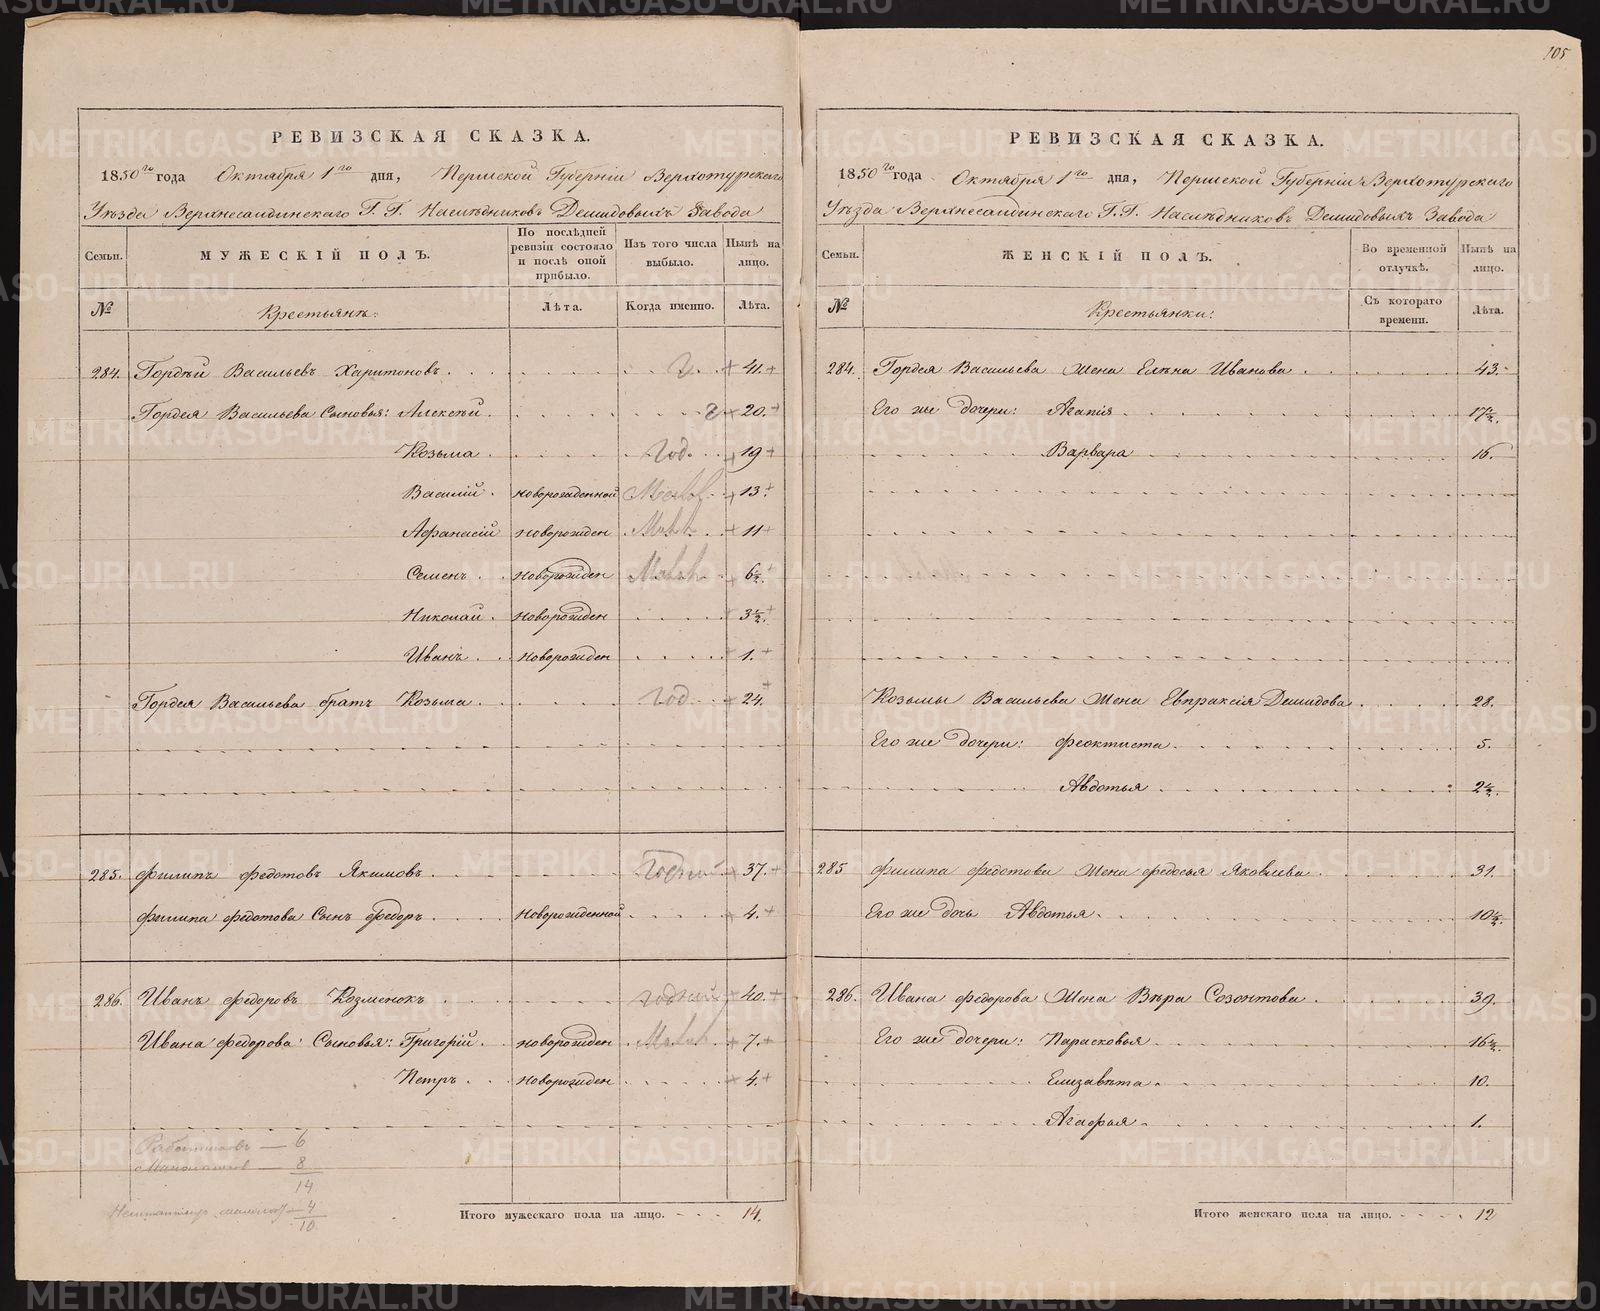 105
РЕВИЗСКАЯ СКАЗКА.
1850го года Октября 1го дня, Пермской Губерніи Верхотурскаго
Уѣзда Верхнесалдинскаго Г. Г. Наслѣдниковъ Демидовыхъ Завода
Семьи. МУЖЕСКІЙ ПОЛЪ. По послѣдней ревизіи состояло и послѣ оной прибыло. Изъ того числа выбыло. Нынѣ на лицо.
№ Крестьянъ: Лѣта. Когда именно. Лѣта.
284. Гордѣй Васильевъ Харитоновъ. г. 41.
Гордея Васильева Сыновья: Алексѣй. г 20.
Козьма. год. 19
Василій. новорожденной 13.
Афанасій новорожден 11
Семенъ новорожден 6½.
Николай. новорожден 3½.
Иванъ новорожден 1.
Гордея Васильева братъ Козьма. год 24.
285. Филипъ Федотовъ Якимовъ. годной 37.
Филипа Федотова Сынъ Федоръ. новорожденной 4.
286. Иванъ Федоровъ Козменокъ годной 40.
Ивана Федорова Сыновья: Григорій. новорожден 7.
Петръ. новорожден 4.
Работниковъ — 6
Малолѣтковъ — 8
14
4
10
Итого мужескаго пола на лицо. 14.
РЕВИЗСКАЯ СКАЗКА.
1850го года Октября 1го дня, Пермской Губерніи Верхотурскаго
Уѣзда Верхнесалдинскаго Г. Г. Наслѣдниковъ Демидовыхъ Завода
Семьи. ЖЕНСКІЙ ПОЛЪ. Во временной отлучкѣ. Нынѣ на лицо.
№ Крестьянки: Съ котораго времени. Лѣта.
284. Гордея Васильева Жена Елѣна Иванова 43.
Его же дочери: Агапія 17½.
Варвара 16.
Козьмы Васильева Жена Евпраксія Демидова 28.
Его же дочери: Феоктиста. 5.
Авдотья 2½.
285 Филипа Федотова Жена Федосья Яковлева 31.
Его же Дочь Авдотья. 10½.
286. Ивана Федорова Жена Вѣра Созонтова 39.
Его же дочери: Парасковья 16½.
Елизавѣта. 10.
Агафья. 1.
Итого женскаго пола на лицо. 12
METRIKI.GASO-URAL.RU